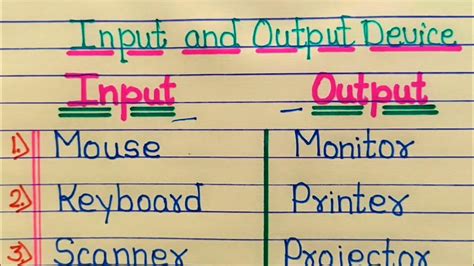 Input and Output Device
Input Output
1.) Mouse Monitor
2.) Keyboard Printer
3.) Scanner Projector